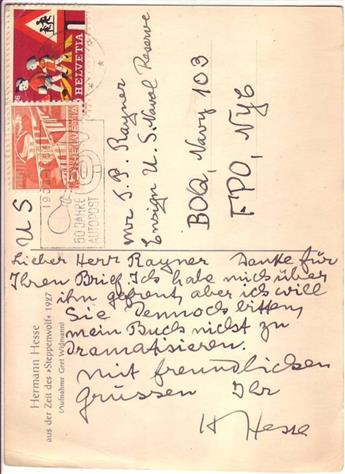 HELVETIA
HELVETIA
50 JAHRE
AUTOPOST
U S
Mr J. P. Rayner
Ensign U. S. Naval Reserve
BOQ, Navy 103
FPO, NYC
Lieber Herr Rayner Danke für
Ihren Brief. Ich habe mich über
ihn gefreut, aber ich will
Sie Dennoch bitten,
mein Buch nicht zu
dramatisieren.
Mit freundlichen
grüssen Ihr
H Hesse
Hermann Hesse
aus der Zeit des »Steppenwolf« 1927
(Aufnahme Gret Widmann)